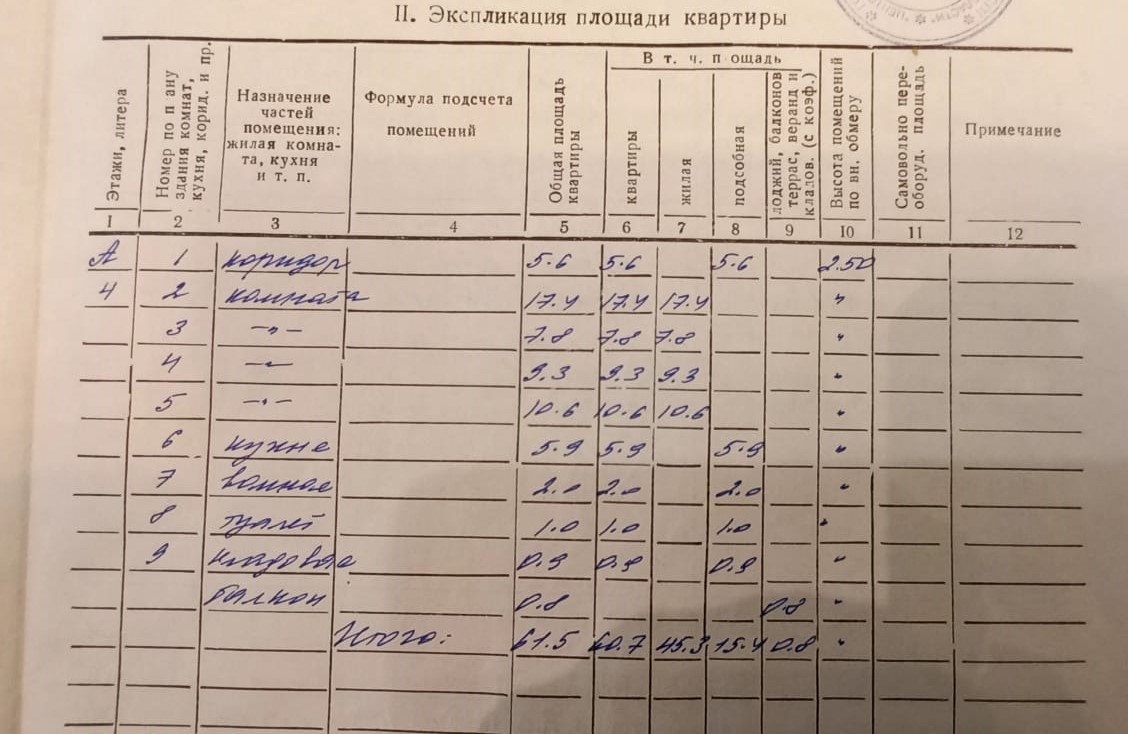 II. Экспликация площади квартиры
Этажи, литера
Номер по п ану здания комнат, кухня, корид. и пр.
Назначение частей помещения: жилая комна-та, кухня и т. п.
Формула подсчета помещений
Общая площадь квартиры
В т. ч. п ощадь
квартиры
жилая
подсобная
лоджий, балконов террас, веранд и кладов. (с коэф.)
Высота помещений по вн. обмеру
Самовольно пере-оборуд. площадь
Примечание
1 2 3 4 5 6 7 8 9 10 11 12
А 1 коридор 5.6 5.6 5.6 2.50
4 2 комната 17.4 17.4 17.4 "
3 —"— 7.8 7.8 7.8 "
4 —"— 9.3 9.3 9.3 "
5 —"— 10.6 10.6 10.6 "
6 кухня 5.9 5.9 5.9 "
7 ванная 2.0 2.0 2.0 "
8 туалет 1.0 1.0 1.0 "
9 кладовая 0.9 0.9 0.9 "
балкон 0.8 0.8 "
Итого: 61.5 60.7 45.3 15.4 0.8 "